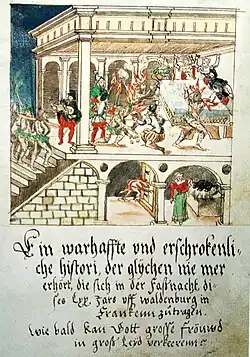 Ein warhaffte vnd erschrokenli-
che histori, der glychen nie mer
erhört, die sich in der Fastnacht, di
ses Lxx. Jars vff waldenburg in
Francken zutragen.
Wie bald kan Gott grosse fröuwd
in groß Leyd verkeren